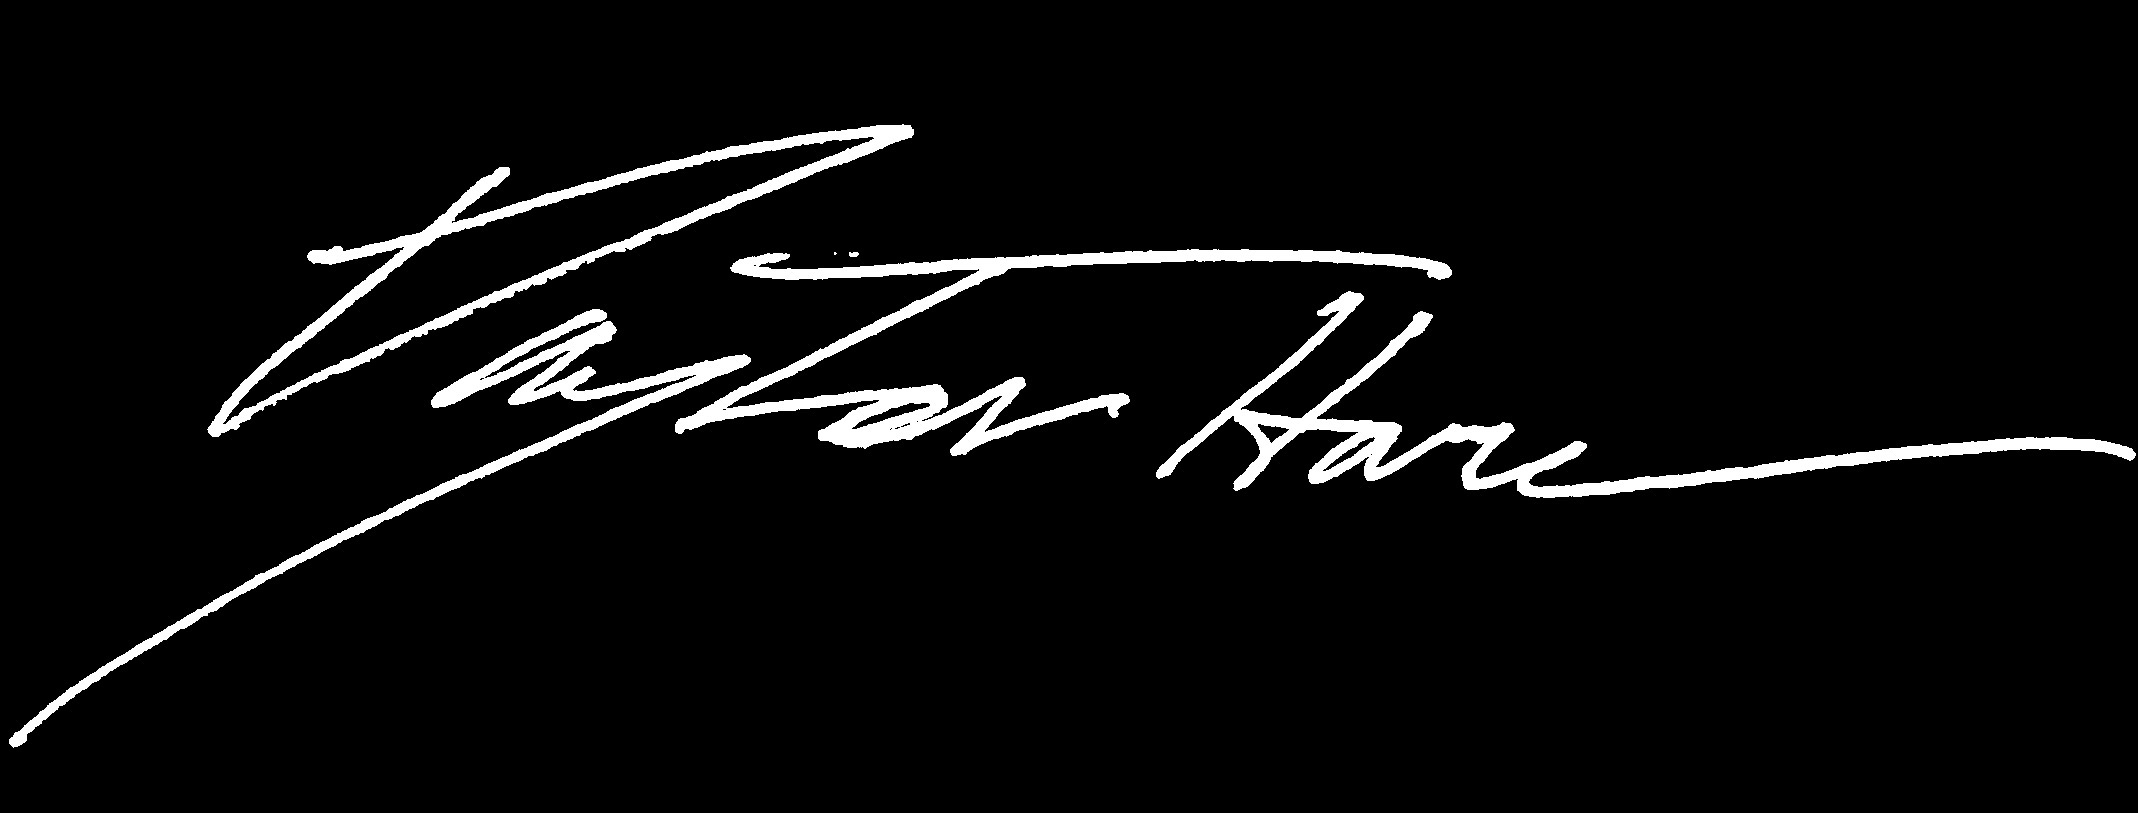 Dayton Hare